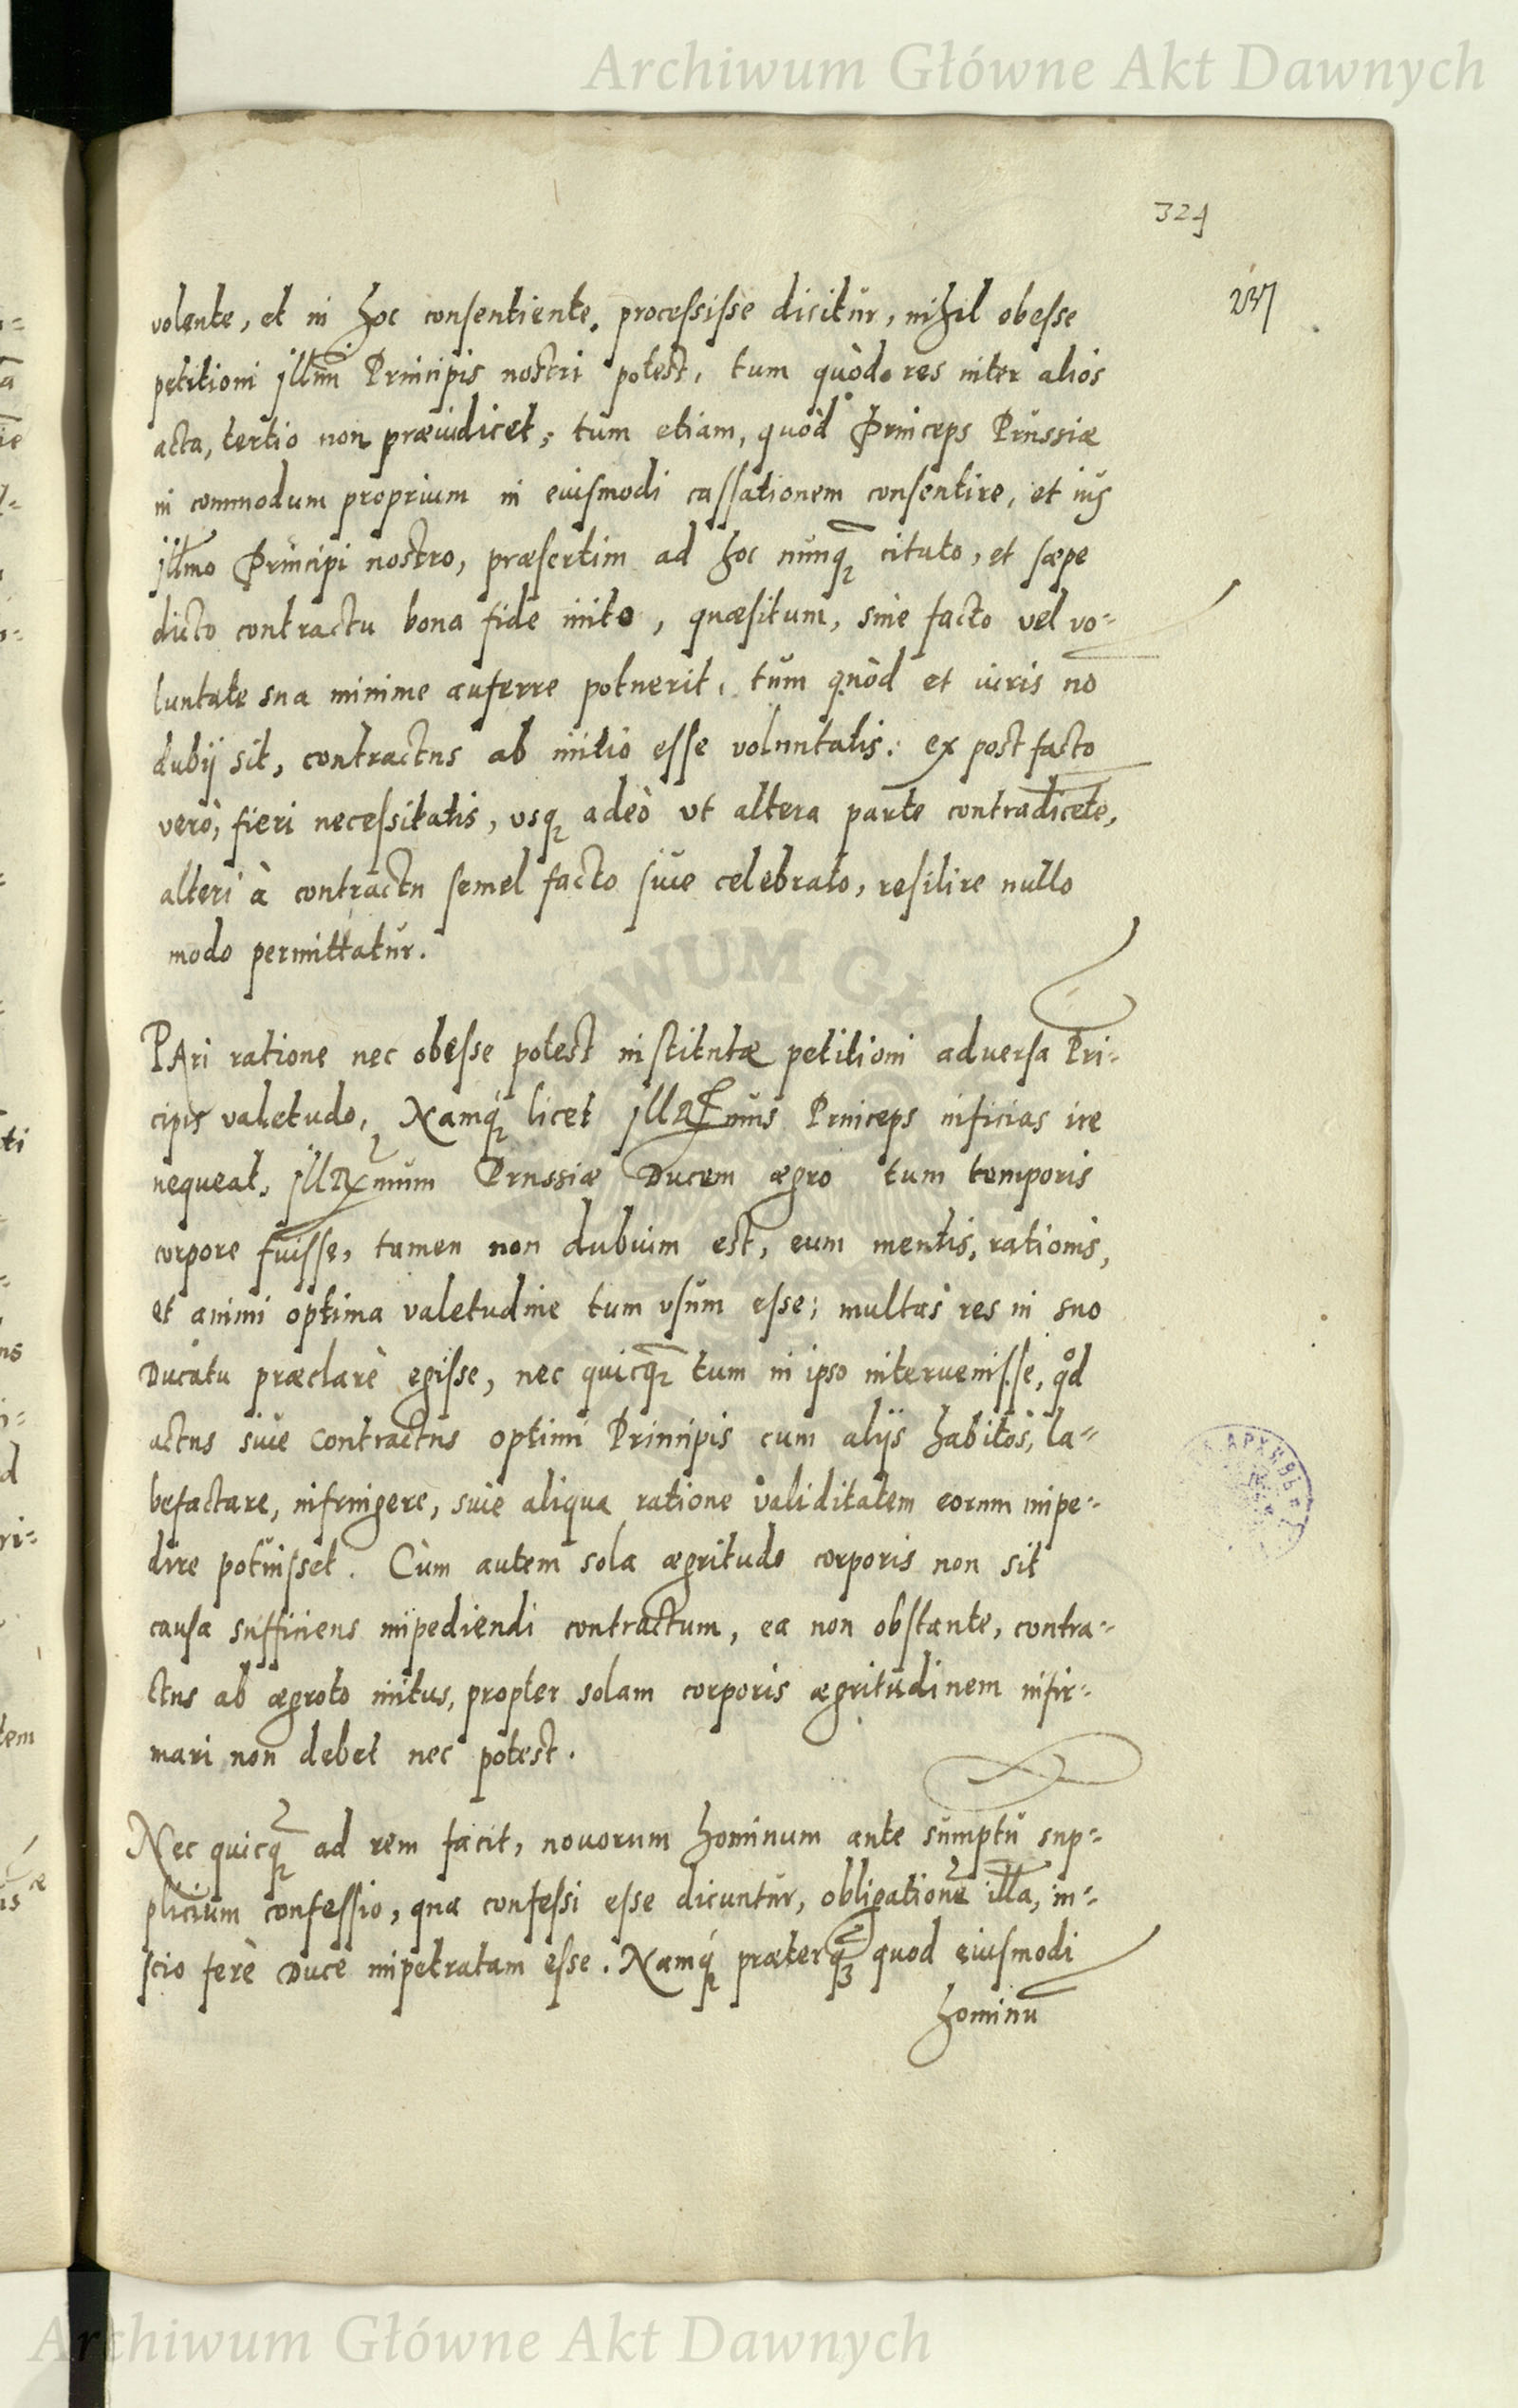 Archiwum Główne Akt Dawnych
324
237
volente, et in hoc consentiente, processisse dicitur, nihil obesse
petitioni jllmi Principis nostri potest, tum quòd res inter alios
acta, tertio non præiudicet, tum etiam, quòd Princeps Prussiæ
in commodum proprium in eiusmodi cassationem consentire, et ius
jllmo Principi nostro, præsertim ad hoc nunq̃ citato, et sæpe
dicto contractu bona fide inito, quæsitum, sine facto vel vo=
luntate sua minime auferre potuerit, tum quòd et iuris nō
dubij sit, contractus ab initio esse voluntatis: ex post facto
verò, fieri necessitatis, vsq adeò vt altera parte contradicēte,
alteri à contractu semel facto siue celebrato, resilire nullo
modo permittatur.
PAri ratione nec obesse potest institutæ petitioni aduersa Prī=
cipis valetudo, Namq́ licet jllrmus Princeps inficias ire
nequeat, jllrmum Prussiæ Ducem ægro tum temporis
corpore fuisse, tamen non dubium est, eum mentis, rationis,
et animi optima valetudine tum vsum esse, multas res in suo
Ducatu præclarè egisse, nec quicq̃ tum in ipso interuenisse, qd
actus siue contractus optimi Principis cum alijs habitos, la=
befactare, infringere, siue aliqua ratione validitatem eorum impe=
dire potuisset. Cùm autem sola ægritudo corporis non sit
causa sufficiens impediendi contractum, ea non obstante, contra=
ctus ab ægroto initus, propter solam corporis ægritudinem infir=
mari non debet nec potest.
Nec quicq̃ ad rem facit, nouorum hominum ante sumptū sup=
plicium confessio, qua confessi esse dicuntur, obligationē illā, in=
scio ferè Duce impetratam esse. Namq́ præterq̃ quod eiusmodi
hominū
Archiwum Główne Akt Dawnych